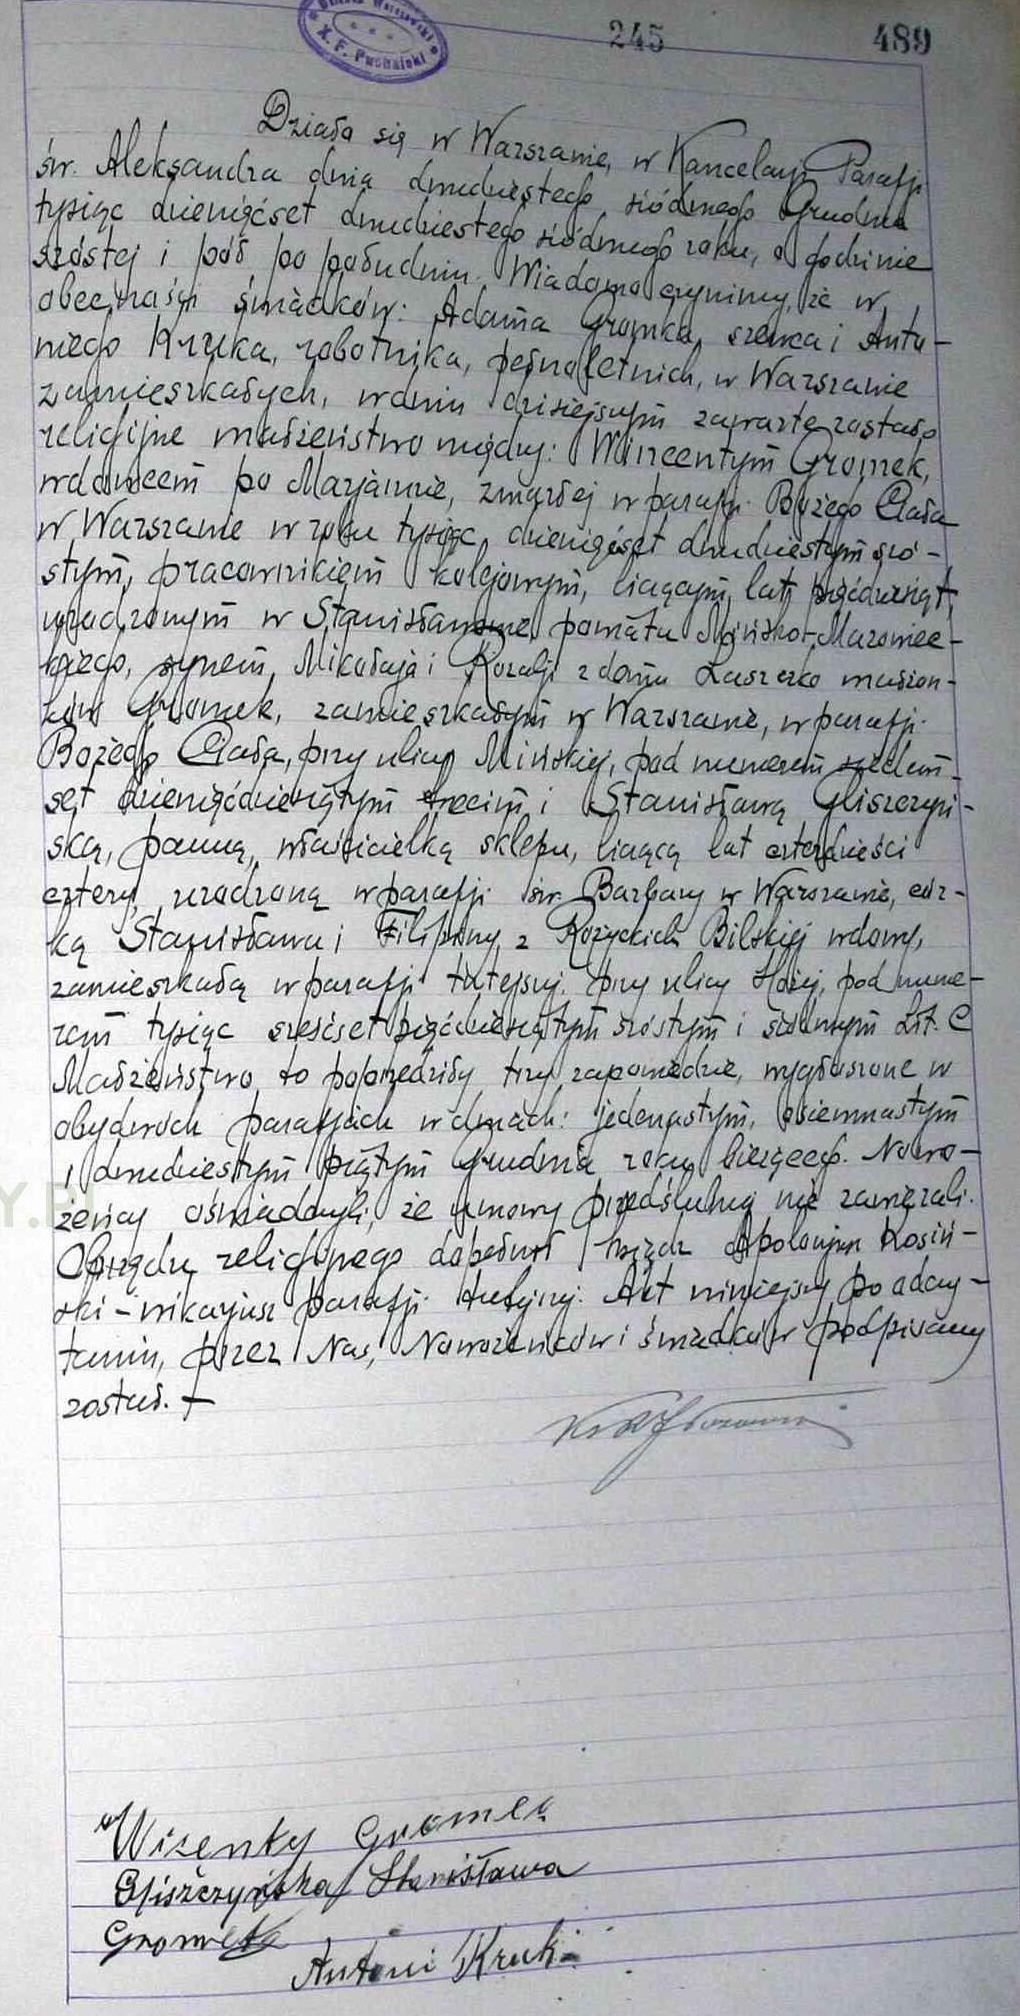 245 489
X. F. Puchalski
Działo się w Warszawie, w Kancelarji Parafji
św. Aleksandra dnia dwudziestego siódmego Grudnia
tysiąc dziewięćset dwudziestego siódmego roku, o godzinie
szóstej i pół po południu. Wiadomo czynimy, że w
obecności świadków: Adama Gromka, szewca i Anto-
niego Kruka, robotnika, pełnoletnich, w Warszawie
zamieszkałych, w dniu dzisiejszym zawarte zostało
religijne małżeństwo między: Wincentym Gromek,
wdowcem po Marjannie, zmarłej w parafji Bożego Ciała
w Warszawie w roku tysiąc dziewięćset dwudziestym szó-
stym, pracownikiem kolejowym, liczącym lat pięćdziesiąt,
urodzonym w Stanisławowie, powiatu Mińsko-Mazowiec-
kiego, synem Mikołaja i Rozalji z domu Łaszczko małżon-
ków Gromek, zamieszkałym w Warszawie, w parafji
Bożego Ciała, przy ulicy Mińskiej, pod numerem siedem-
set dziewięćdziesiątym trzecim i Stanisławą Gliszczyń-
ską, panną, właścicielką sklepu, liczącą lat czterdzieści
cztery, urodzoną w parafji św. Barbary w Warszawie, cór-
ką Stanisława i Filipiny z Rożyckich Bilskiej wdowy,
zamieszkałą w parafji tutejszej przy ulicy Hożej, pod nume-
rem tysiąc sześćset pięćdziesiątym szóstym i siódmym Lit. C
Małżeństwo to poprzedziły trzy zapowiedzie, wygłoszone w
obydwóch parafjach w dniach: jedenastym, osiemnastym
i dwudziestym piątym Grudnia roku bieżącego. Nowo-
żeńcy oświadczyli, że umowy przedślubnej nie zawierali.
Obrzędu religijnego dopełnił ksiądz Apolinjusz Kosiń-
ski - wikarjusz parafji tutejszej. Akt niniejszy po odczy-
taniu, przez Nas, Nowożeńców i świadków podpisany
został. +
Wisenty Gromek
Gliszczyńska Stanisława
Gromek
Antoni Kruk